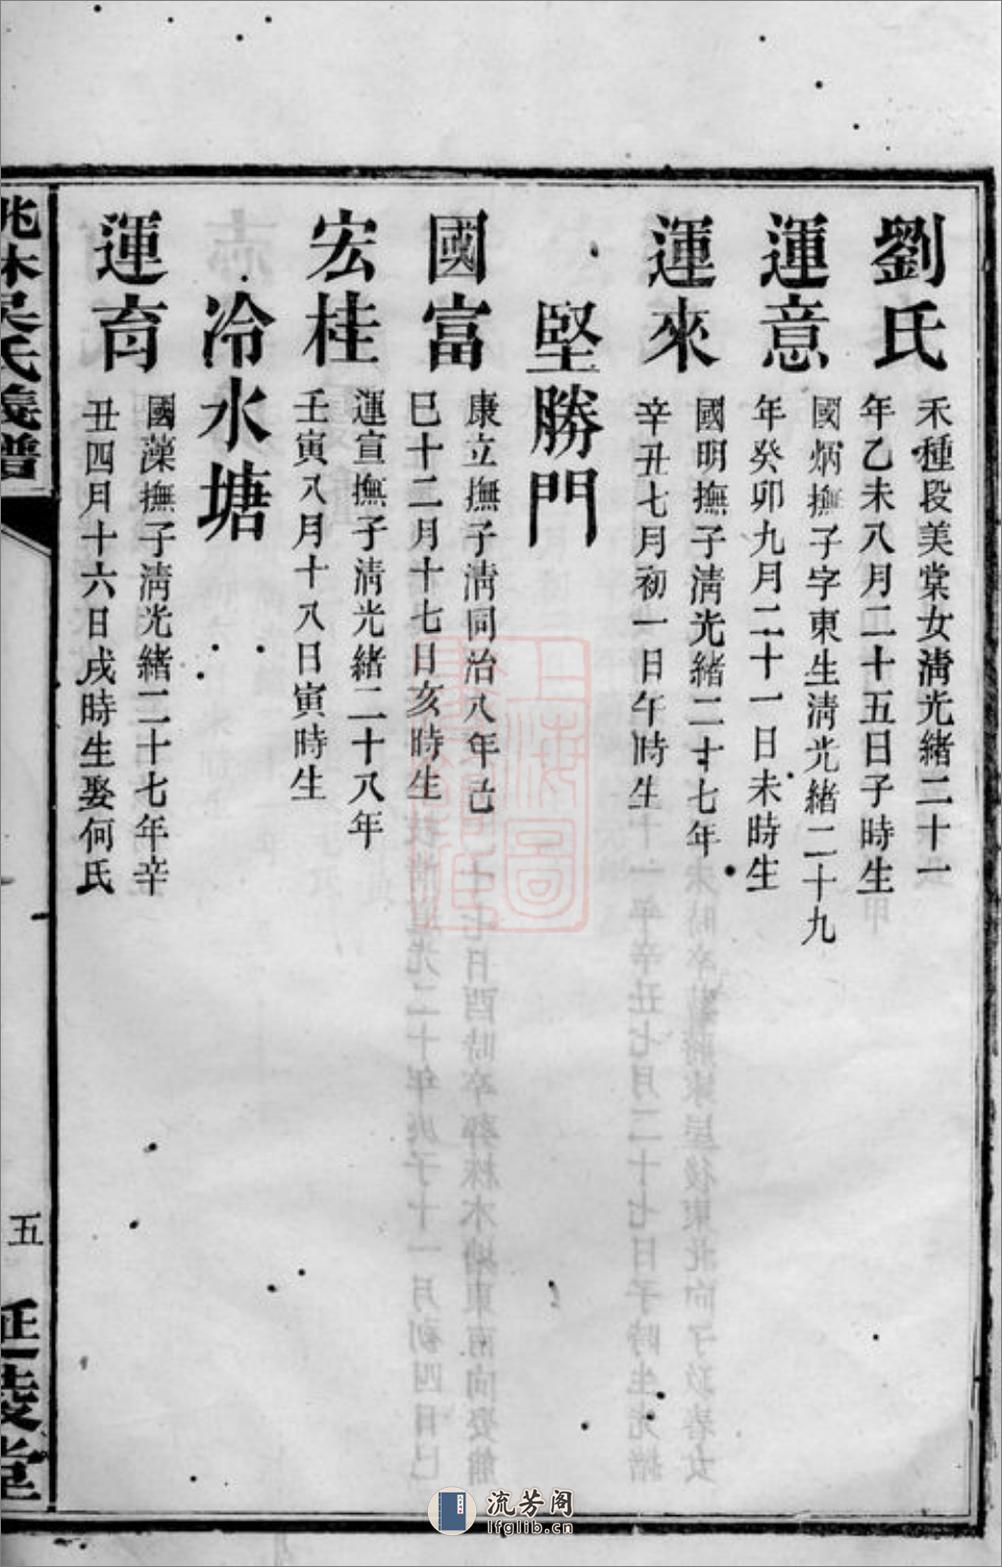 劉氏
禾種段美棠女淸光緒二十一
年乙未八月二十五日子時生
運意
國炳撫子字東生淸光緒二十九
年癸卯九月二十一日未時生
運來
國明撫子淸光緒二十七年
辛丑七月初一日午時生
堅勝門
國富
康立撫子淸同治八年己
巳十二月十七日亥時生
宏桂
運宣撫子淸光緒二十八年
壬寅八月十八日寅時生
冷水塘
運育
國藻撫子淸光緒二十七年辛
丑四月十六日戌時生娶何氏
吳氏義譜
五
上海圖
流芳阁
lfglib.cn